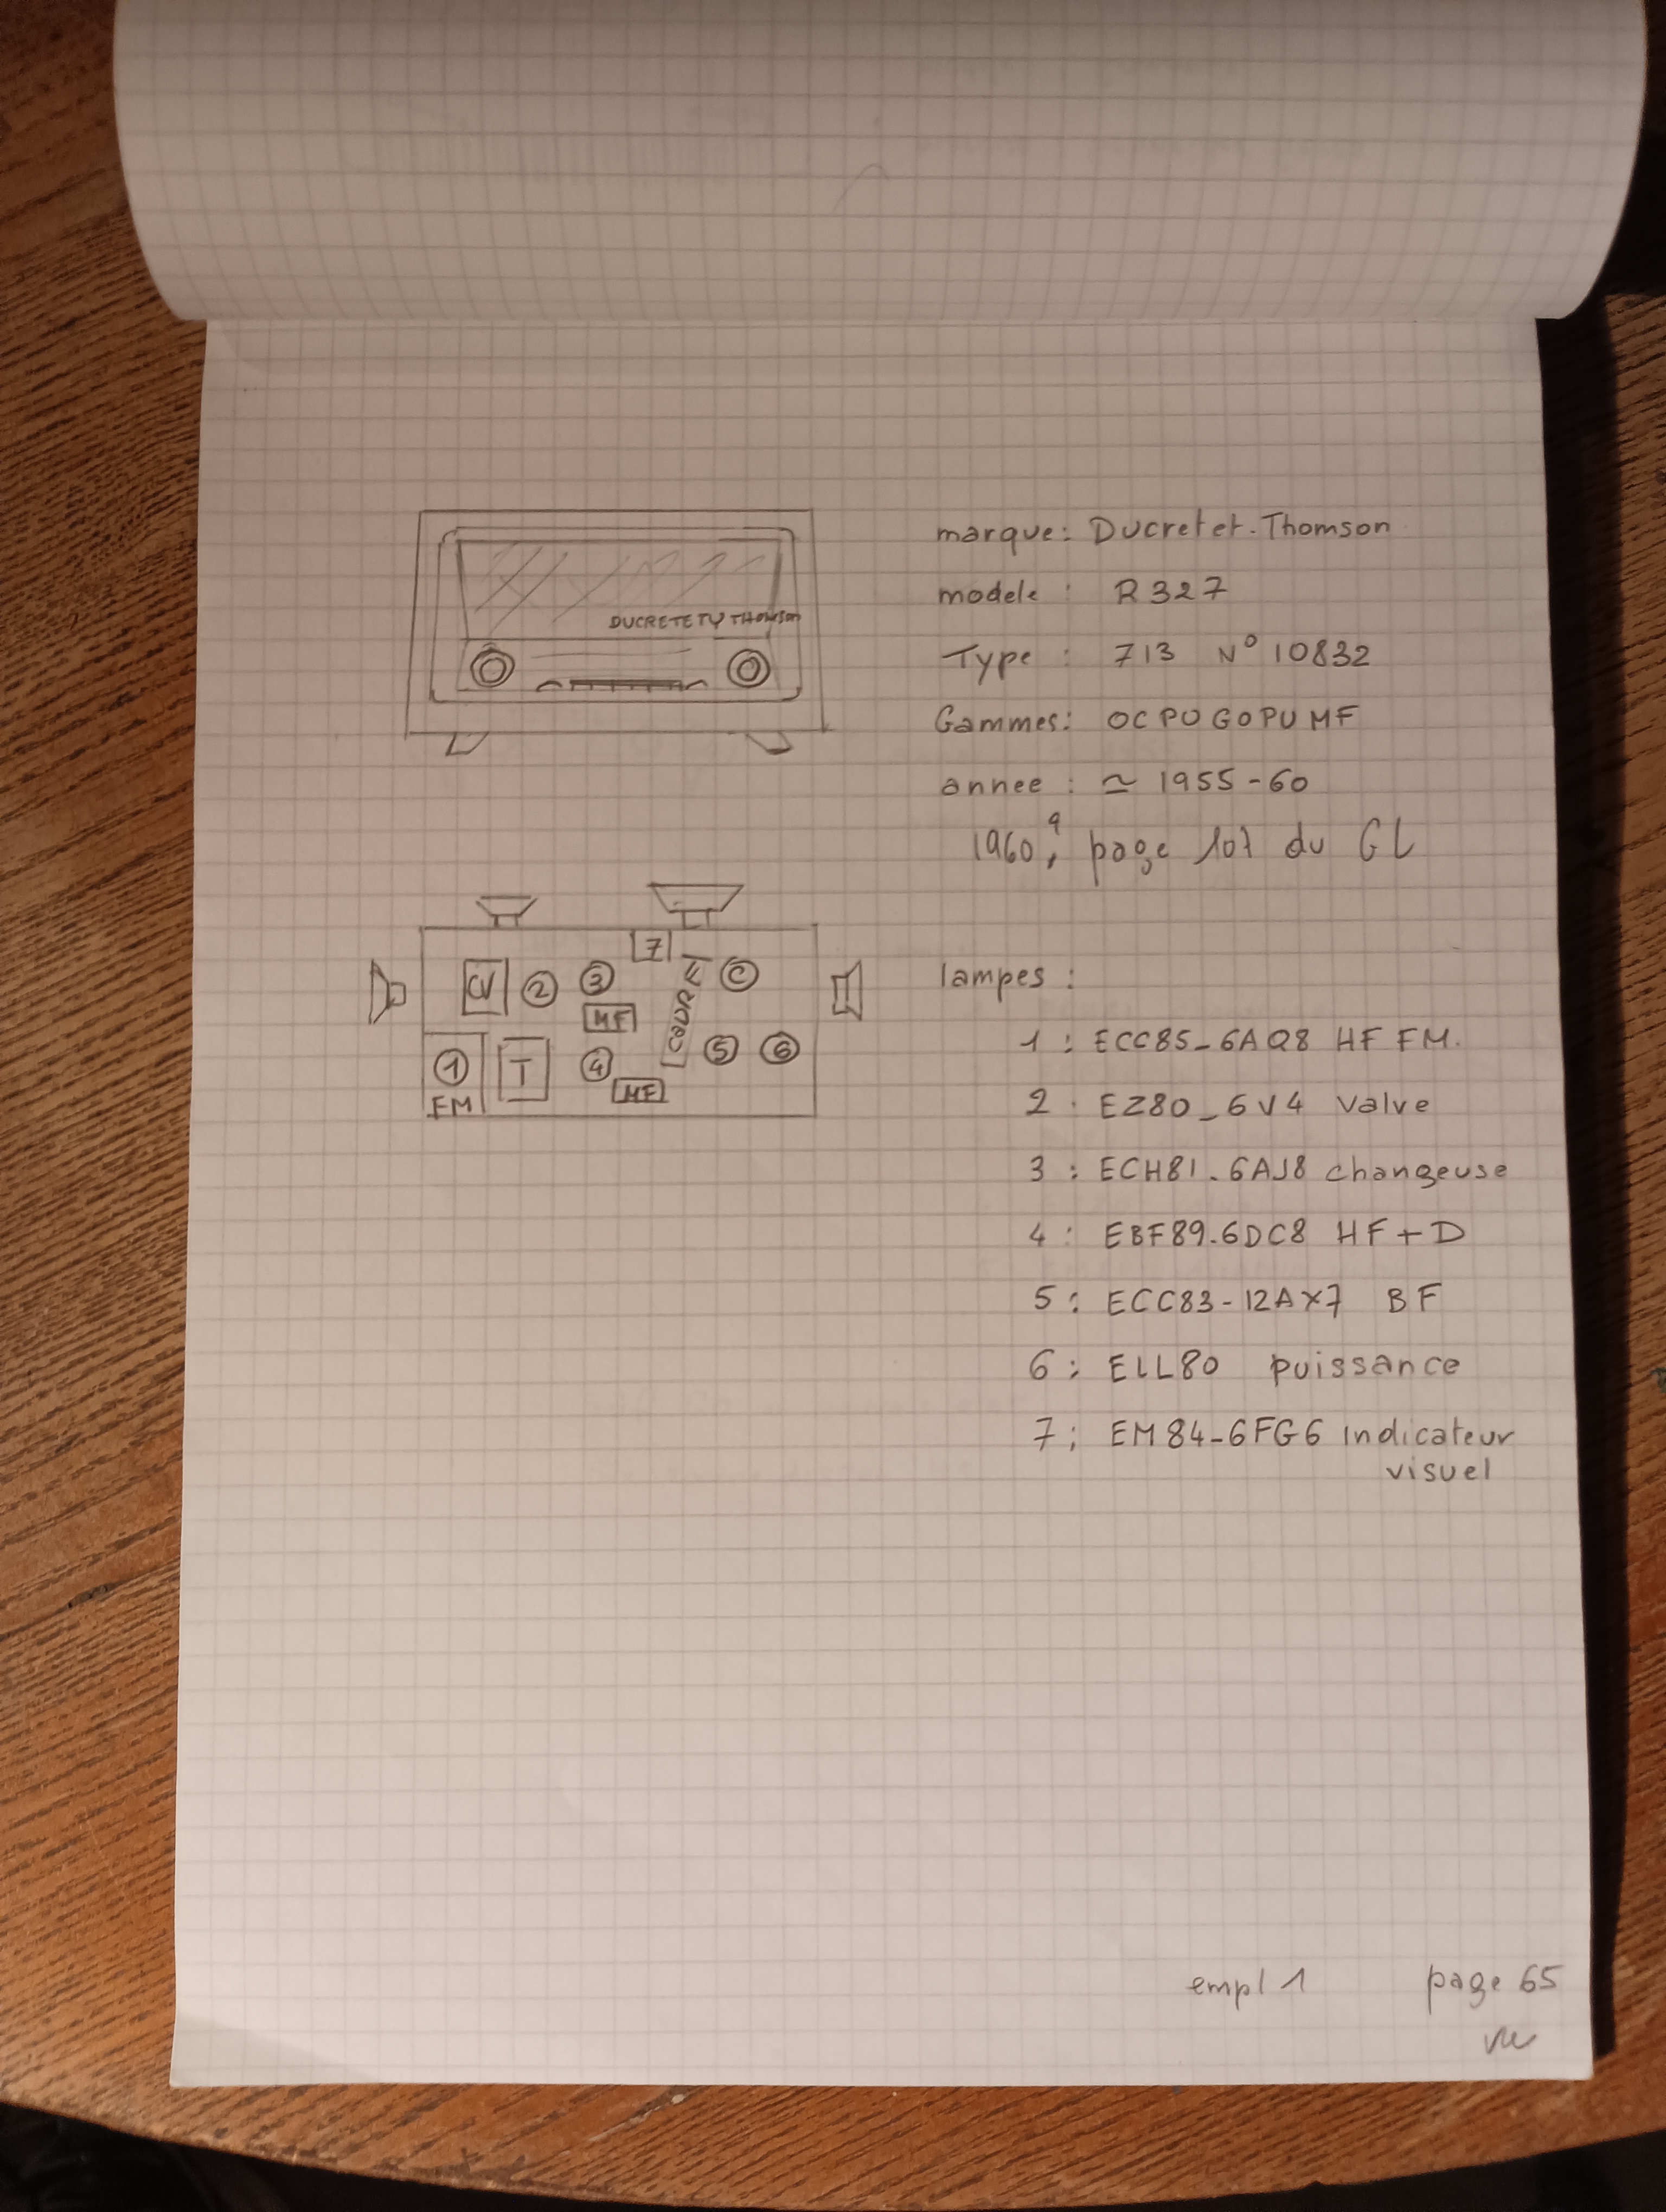 DUCRETET THOMSON
marque: Ducretet. Thomson
modele : R 327
Type : 713 N° 10832
Gammes: OC PO GO PU MF
annee : ≃ 1955-60
1960, page 107 du GL
7
CV 2 3 CADRE C
MF
1 T 4 5 6
FM MF
lampes :
1 : ECC85-6AQ8 HF FM.
2 . EZ80-6V4 valve
3 : ECH81.6AJ8 changeuse
4 : EBF89.6DC8 HF+D
5 : ECC83-12AX7 BF
6 : ELL80 puissance
7 ; EM84-6FG6 indicateur
visuel
empl 1 page 65